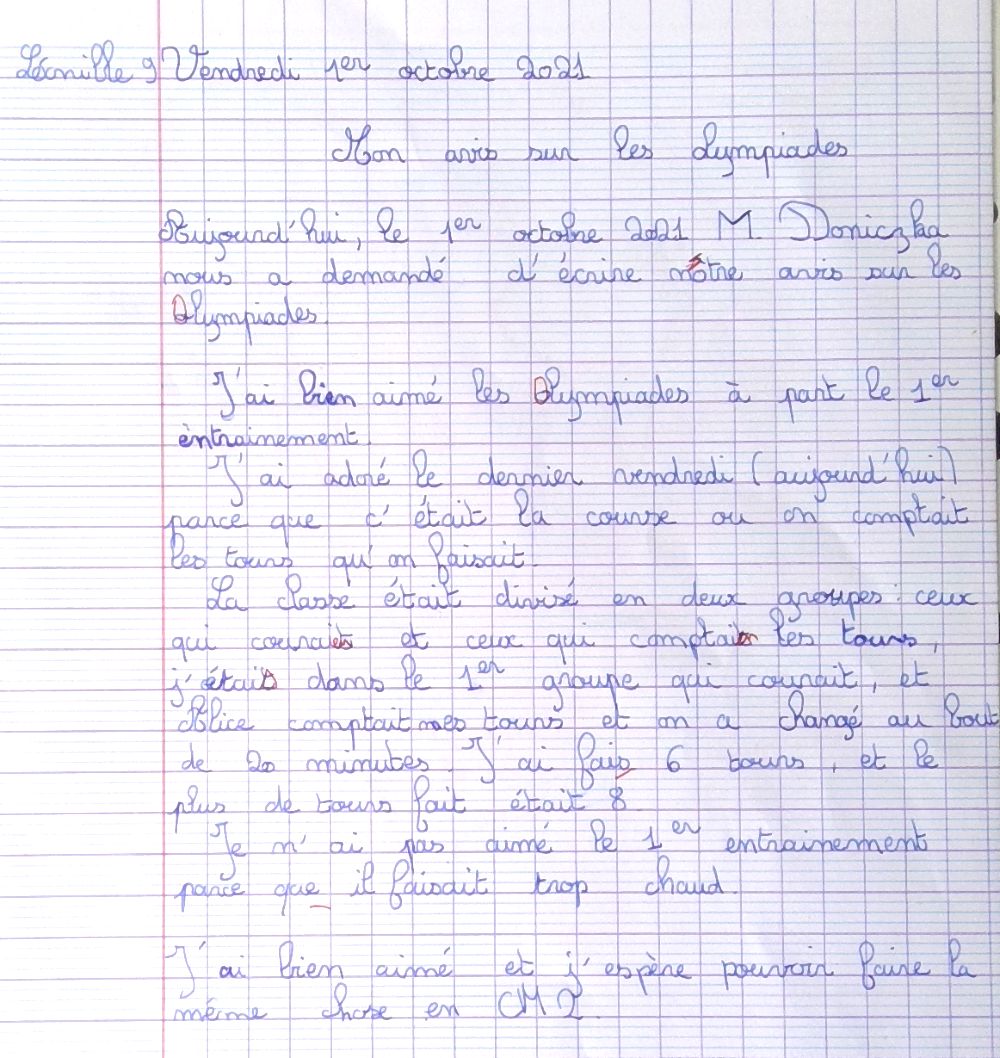 Camille 9 Vendredi 1er octobre 2021
Mon avis sur les Olympiades
Aujourd'hui, le 1er octobre 2021 M. Doniczka
nous a demandé d'écrire notre avis sur les
Olympiades.
J'ai bien aimé les Olympiades à part le 1er
entrainement.
J'ai adoré le dernier vendredi (aujourd'hui)
parce que c'était la course ou on comptait
les tours qu'on faisait.
La classe était divisé en deux groupes : ceux
qui couraient et ceux qui comptait les tours,
j'étais dans le 1er groupe qui courait, et
Alice comptait mes tours et on a changé au bout
de 20 minutes. J'ai fais 6 tours, et le
plus de tours fait était 8.
Je n'ai pas aimé le 1er entrainement
parce que il faisait trop chaud.
J'ai bien aimé et j'espère pouvoir faire la
même chose en CM2.